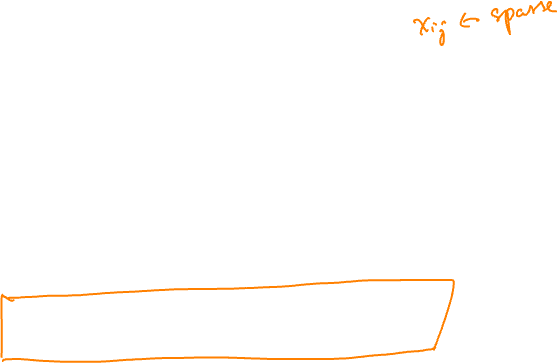 x_ij ← sparse